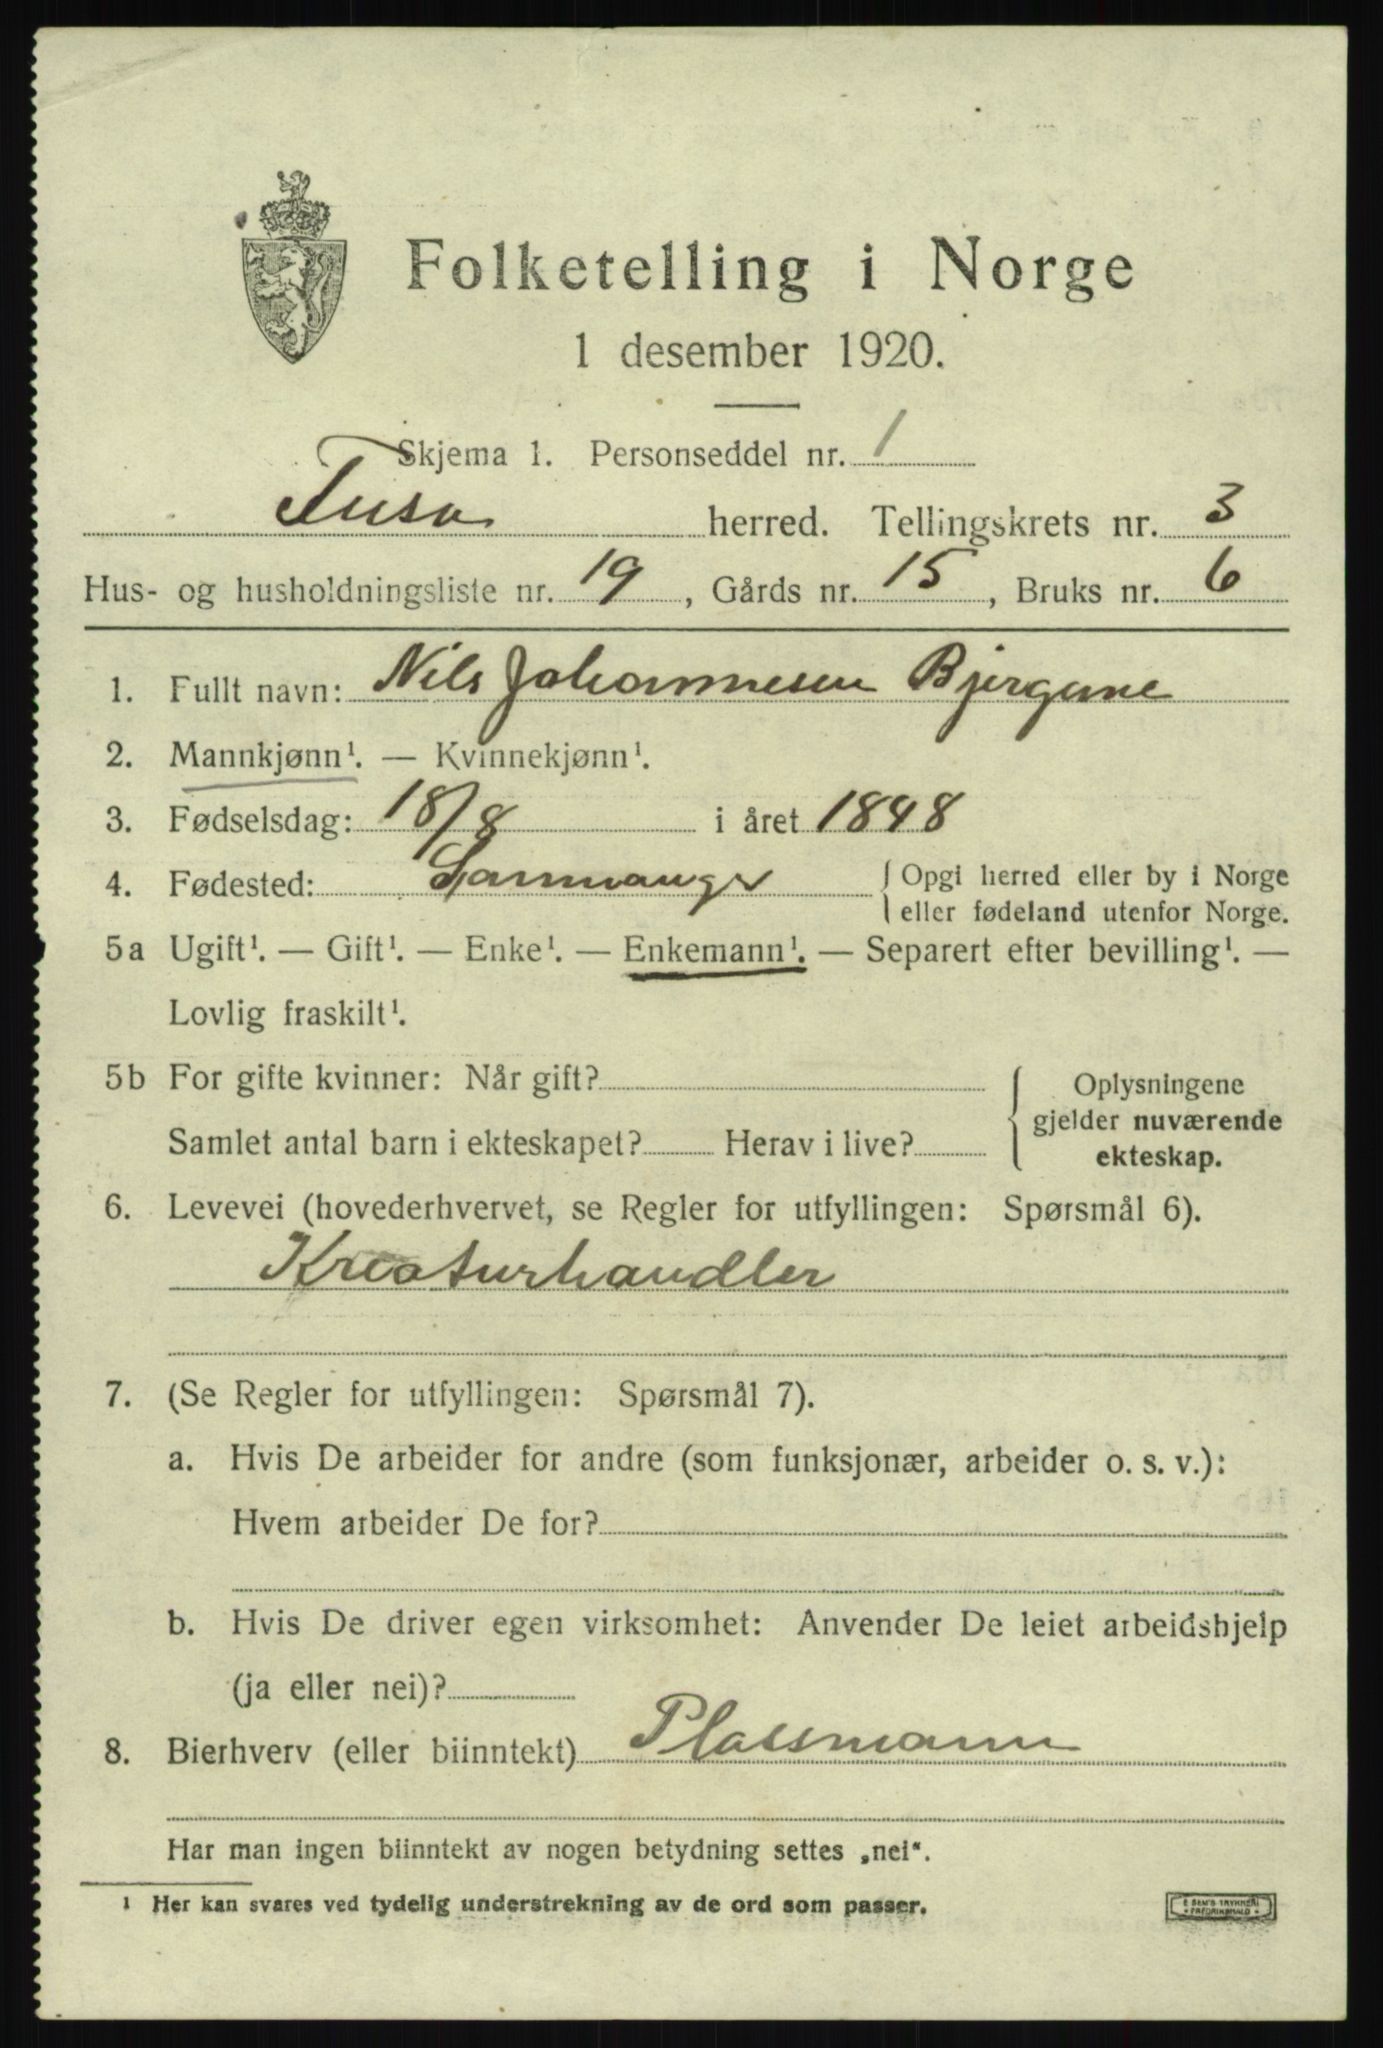 Folketelling i Norge
1 desember 1920.
Skjema 1. Personseddel nr. 1
Fusa herred. Tellingskrets nr. 3
Hus- og husholdningsliste nr. 19, Gårds nr. 15, Bruks nr. 6
1. Fullt navn: Nils Johannesen Bjørgene
2. Mannkjønn¹. — Kvinnekjønn¹.
3. Fødselsdag: 18/8 i året 1848
4. Fødested: Samnanger { Opgi herred eller by i Norge
eller fødeland utenfor Norge.
5a Ugift¹. — Gift¹. — Enke¹. — Enkemann¹. — Separert efter bevilling¹. —
Lovlig fraskilt¹.
5b For gifte kvinner: Når gift?
Samlet antal barn i ekteskapet? Herav i live?
{ Oplysningene
gjelder nuværende
ekteskap.
6. Levevei (hovederhvervet, se Regler for utfyllingen: Spørsmål 6).
Kreaturhandler
7. (Se Regler for utfyllingen: Spørsmål 7).
a. Hvis De arbeider for andre (som funksjonær, arbeider o. s. v.):
Hvem arbeider De for?
b. Hvis De driver egen virksomhet: Anvender De leiet arbeidshjelp
(ja eller nei)?
8. Bierhverv (eller biinntekt) Plassmann
Har man ingen biinntekt av nogen betydning settes „nei“.
¹ Her kan svares ved tydelig understrekning av de ord som passer.